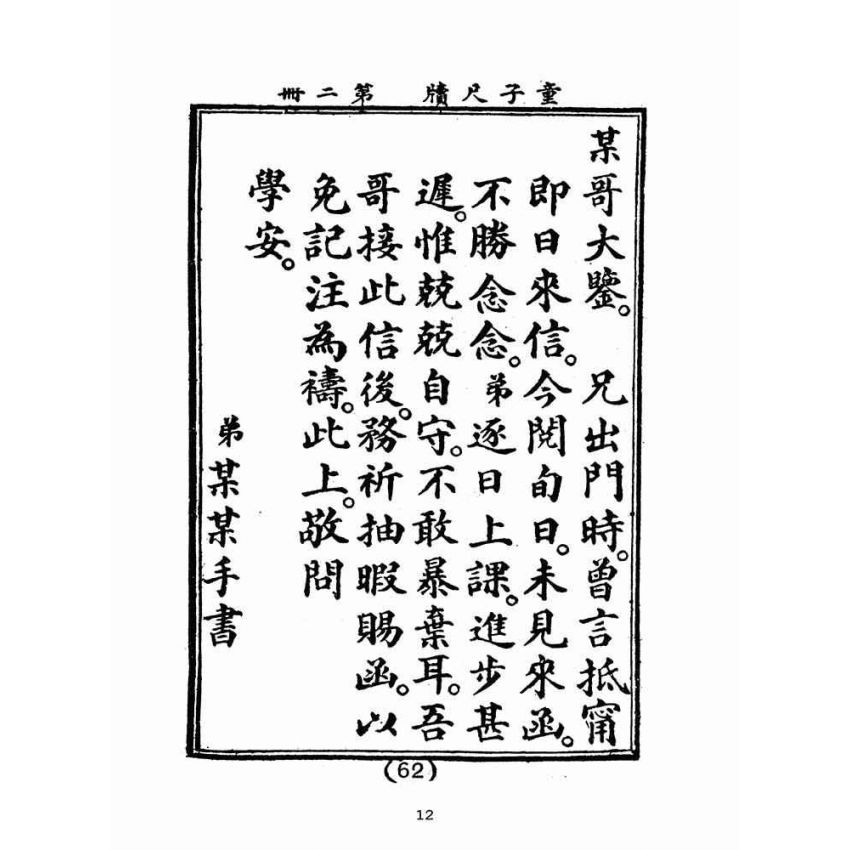 童子尺牘　第二冊
某哥大鑒。　兄出門時。曾言抵甯
即日來信。今閱旬日。未見來函。
不勝念念。弟逐日上課。進步甚
遲。惟兢兢自守。不敢暴棄耳。吾
哥接此信後。務祈抽暇賜函。以
免記注為禱。此上。敬問
學安。
弟某某手書
(62)
12